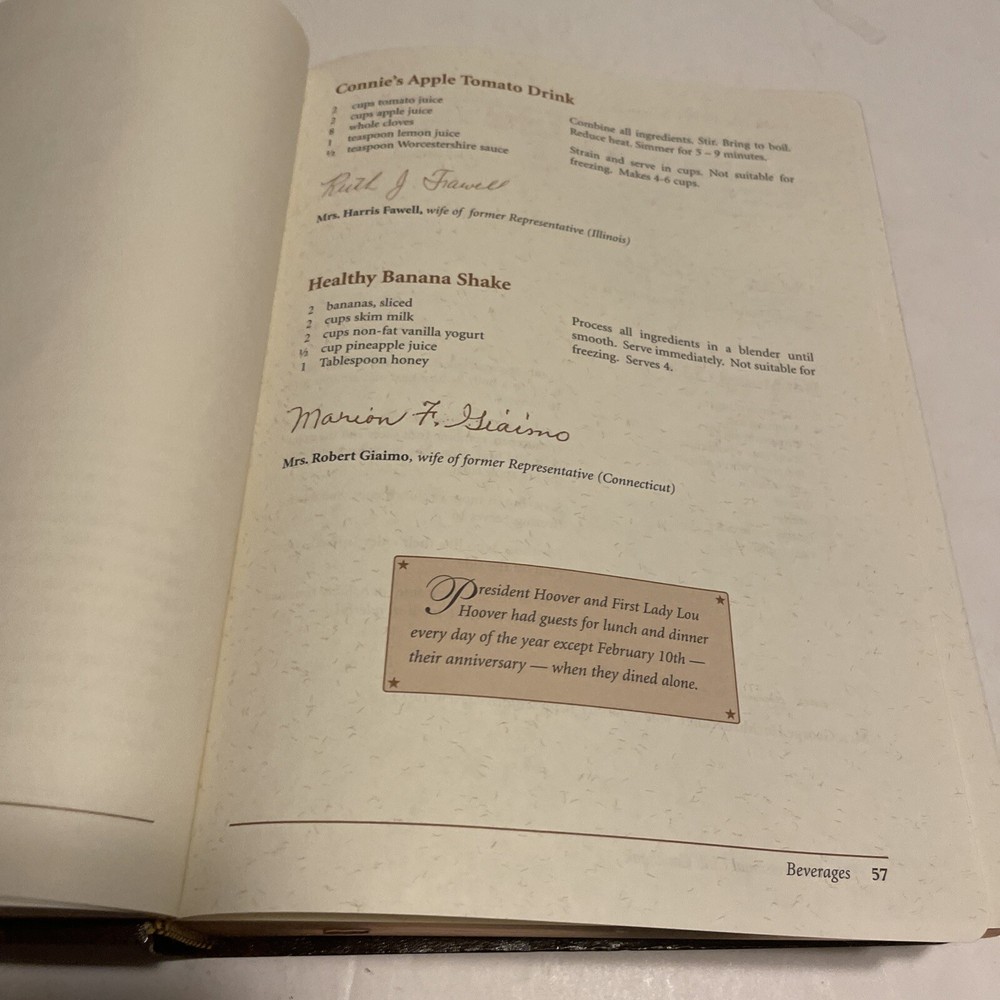 Connie's Apple Tomato Drink
2 cups tomato juice
2 cups apple juice
8 whole cloves
1 teaspoon lemon juice
½ teaspoon Worcestershire sauce
Combine all ingredients. Stir. Bring to boil.
Reduce heat. Simmer for 5 – 9 minutes.
Strain and serve in cups. Not suitable for
freezing. Makes 4-6 cups.
Ruth J. Fawell
Mrs. Harris Fawell, wife of former Representative (Illinois)
Healthy Banana Shake
2 bananas, sliced
2 cups skim milk
2 cups non-fat vanilla yogurt
cup pineapple juice
1 Tablespoon honey
Process all ingredients in a blender until
smooth. Serve immediately. Not suitable for
freezing. Serves 4.
Marion F. Giaimo
Mrs. Robert Giaimo, wife of former Representative (Connecticut)
President Hoover and First Lady Lou
Hoover had guests for lunch and dinner
every day of the year except February 10th —
their anniversary — when they dined alone.
Beverages 57